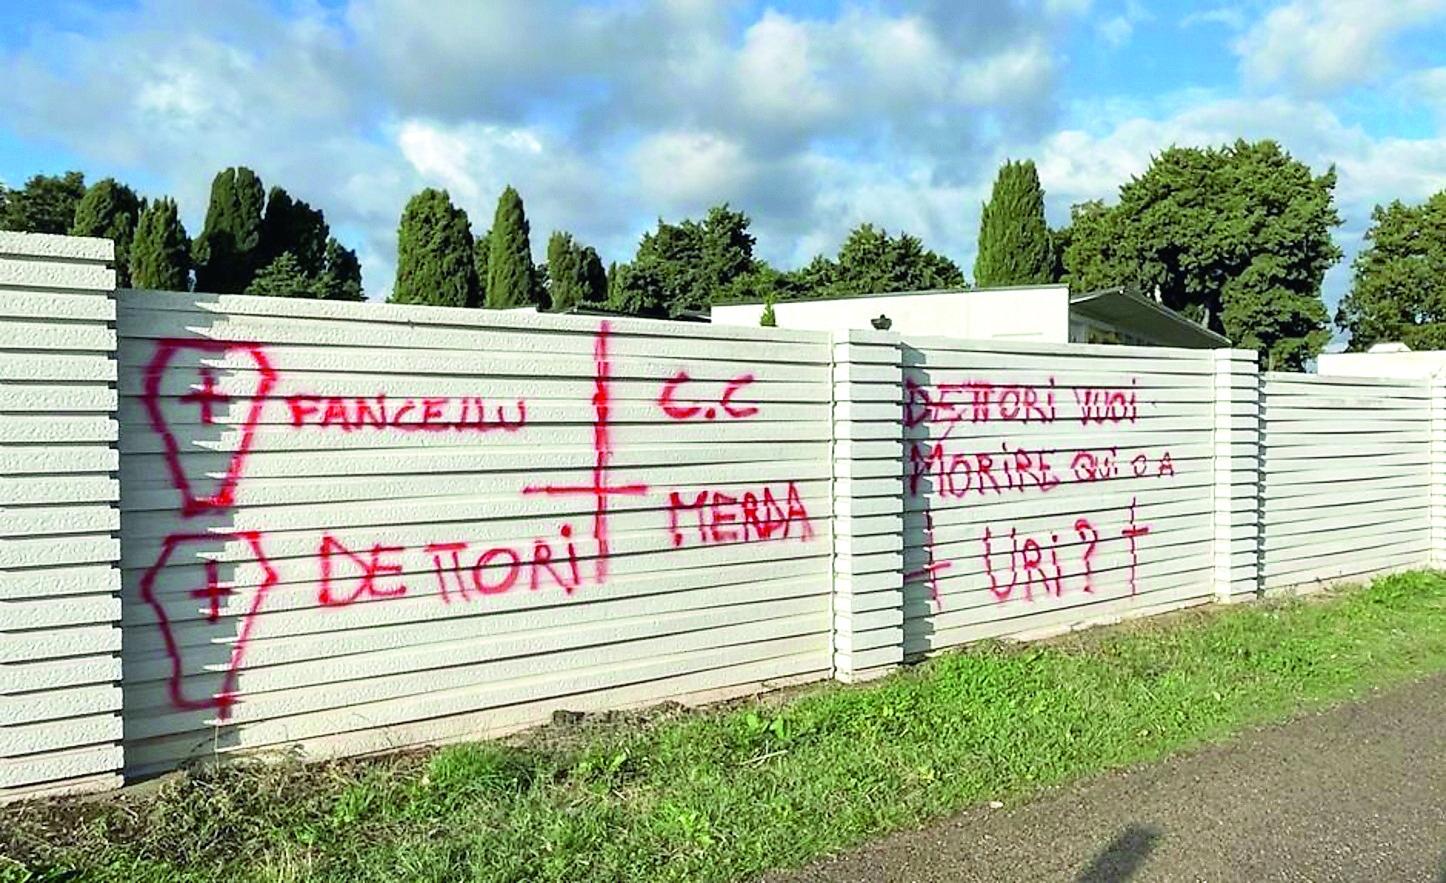 FANCELLU
DETTORI
C.C
MERDA
DETTORI VUOI
MORIRE QUI O A
URI?